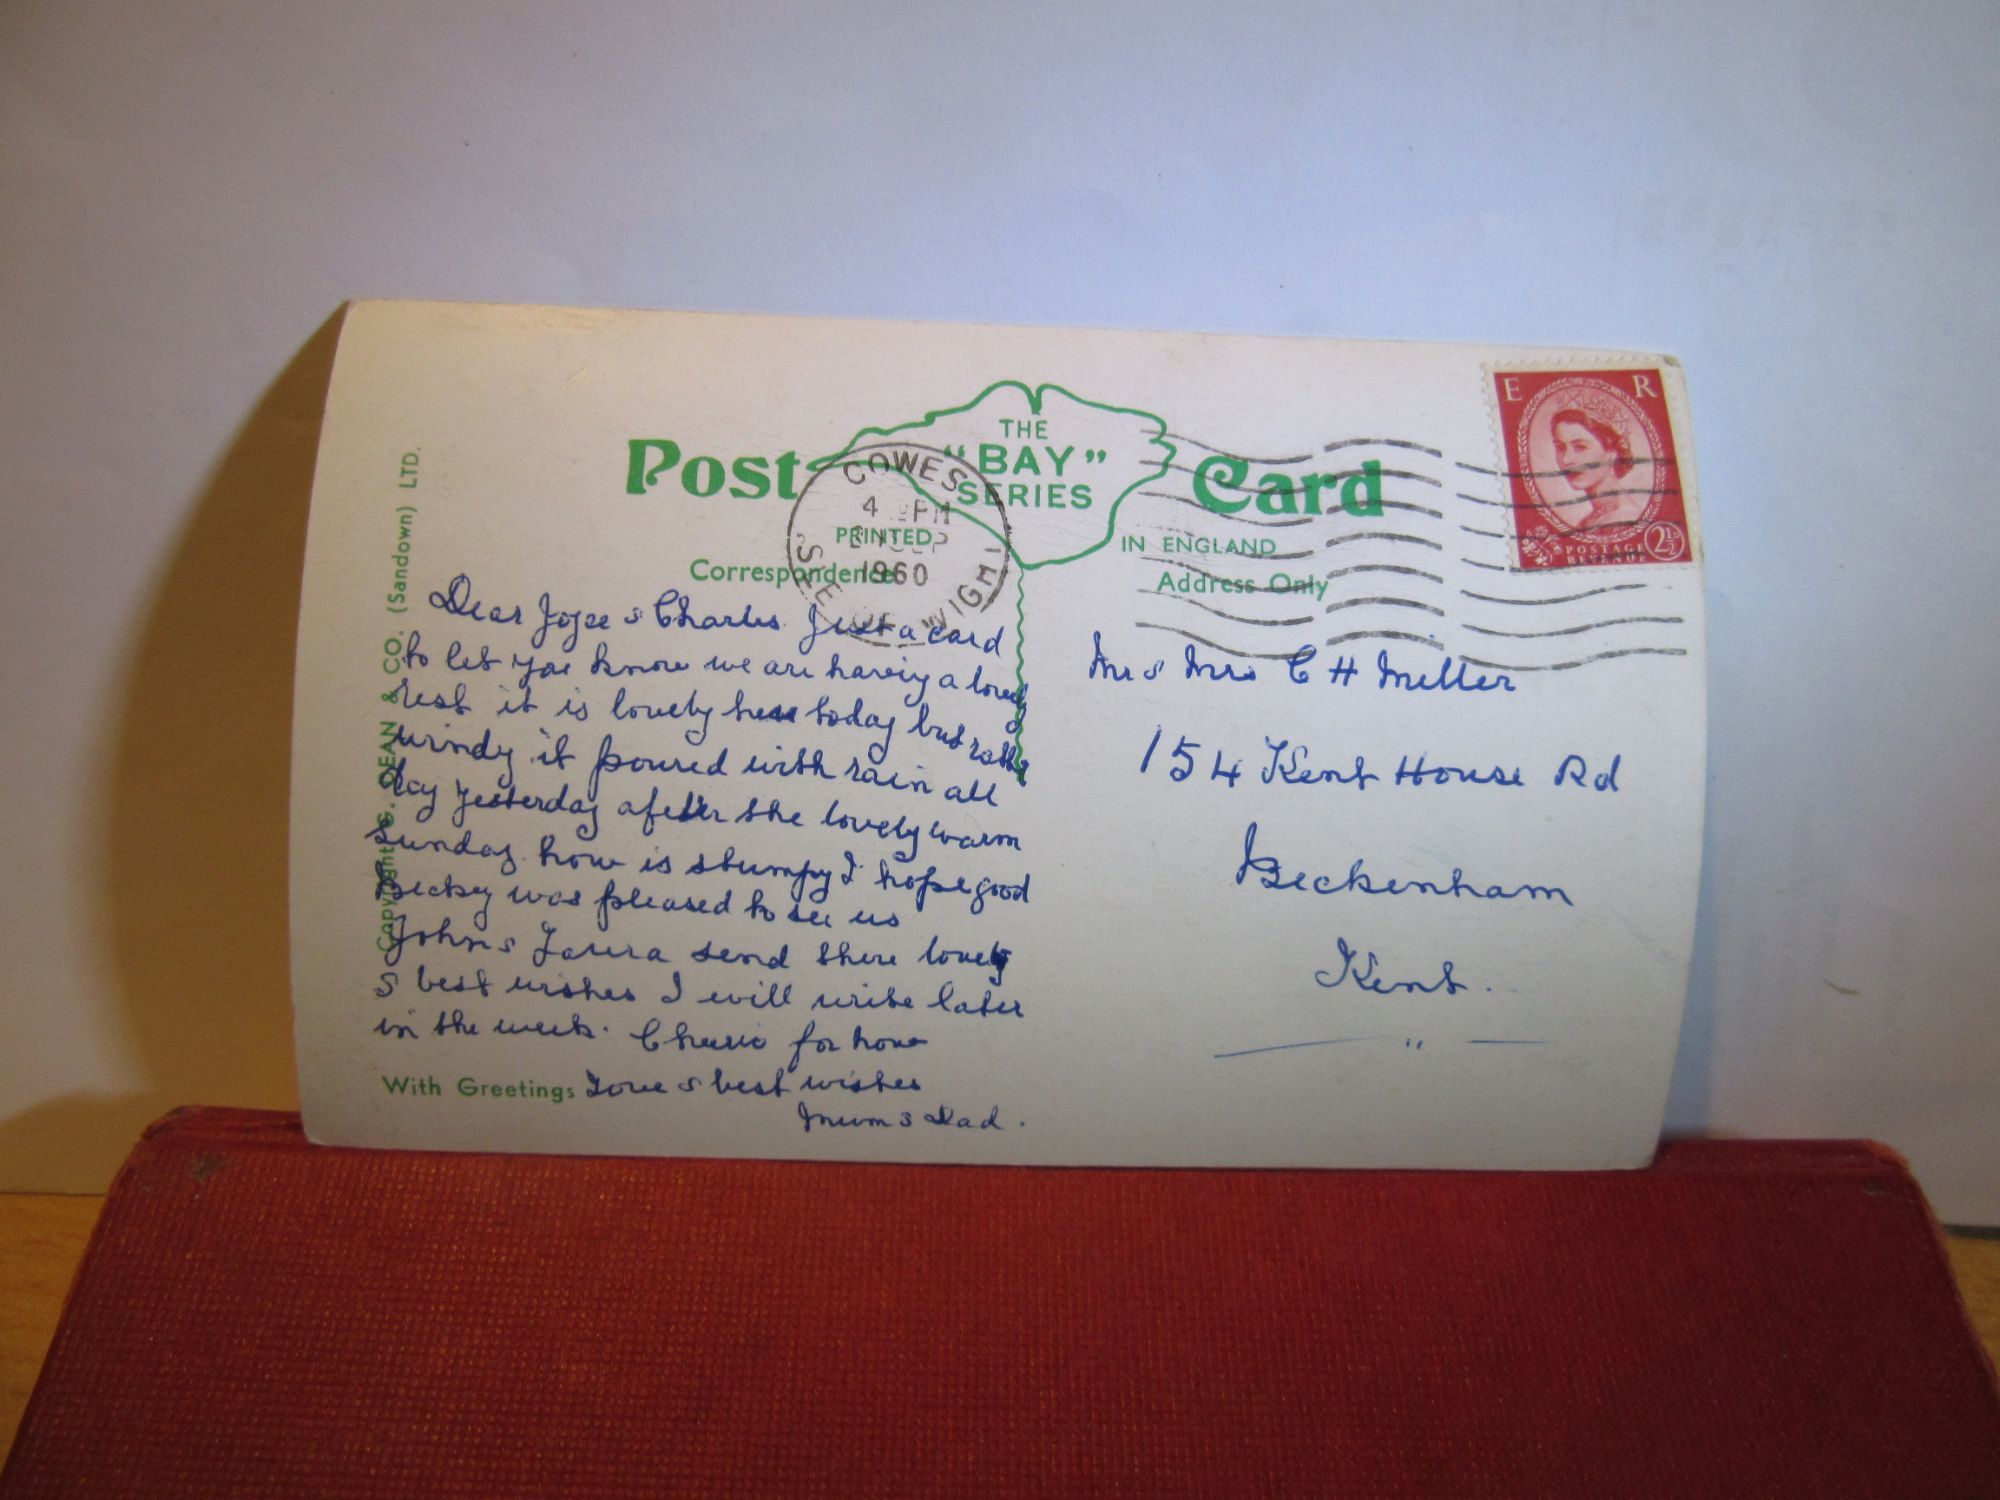 Post Card
THE
"BAY"
SERIES
PRINTED IN ENGLAND
Correspondence
Address Only
COWES
4 PM
SEP
1960
ISLE OF WIGHT
E R
POSTAGE
REVENUE
2½
Copyright G. DEAN & CO. (Sandown) LTD.
Dear Joyce & Charles. Just a card
to let you know we are having a lovely
rest it is lovely here today but rather
windy it poured with rain all
day yesterday after the lovely warm
Sunday. how is stumpy I hope good
Beckey was pleased to see us
John & Laura send there lovely
& best wishes I will write later
in the week. Cheerio for now
With Greetings Love & best wishes
Mum & Dad.
Mr & Mrs C H Miller
154 Kent House Rd
Beckenham
Kent.